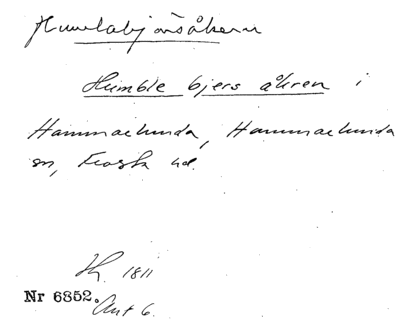 Humlabjörsåkern
Humble bjers åkren i
Hammarlunda, Hammarlunda
sn, Frosta hd.
Hy. 1811
Nr 6852.
Akt 6.